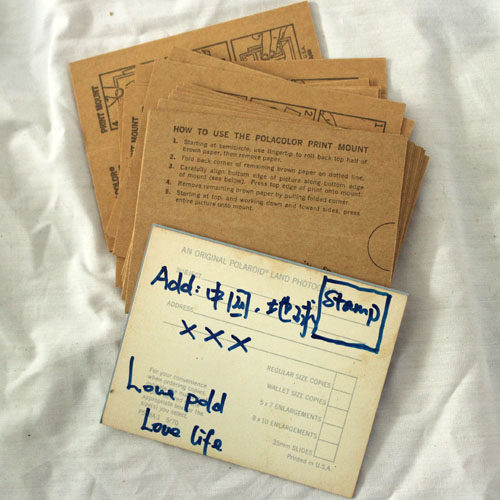 PRINT MOUNT
HOW TO USE THE POLACOLOR PRINT MOUNT
1. Starting at semicircle, use fingertip to roll back top half of
brown paper, then remove paper.
2. Fold back corner of remaining brown paper on dotted line.
3. Carefully align bottom edge of picture along bottom edge
of mount (see below). Press top edge of print onto mount.
4. Remove remaining brown paper by pulling folded corner.
5. Starting at top, and working down and toward sides, press
entire picture onto mount.
AN ORIGINAL POLAROID® LAND PHOTOG
Add: 中国.地球
Stamp
ADDRESS
×××
REGULAR SIZE COPIES
WALLET SIZE COPIES
5 x 7 ENLARGEMENTS
8 x 10 ENLARGEMENTS
35mm SLIDES
Printed in U.S.A.
For your convenience
when ordering copies
Love pold
Love life